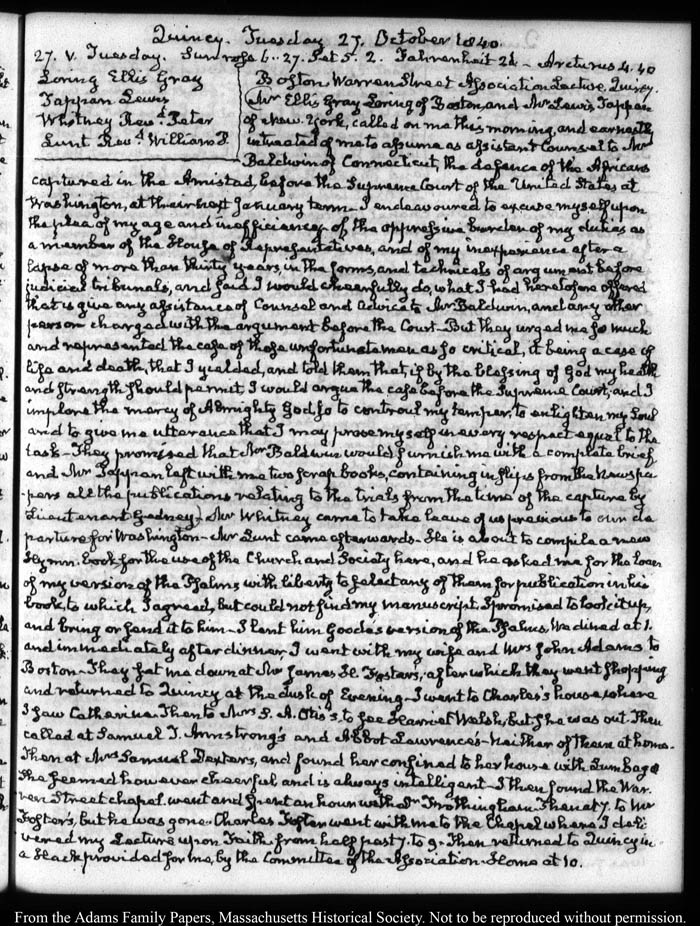 Quincy. Tuesday 27. October 1840.
27. V. Tuesday. Sun rose 6..27. Set 5. 2. Fahrenheit 24 - Arcturus 4.40
Loring Ellis Gray
Tappan Lewis
Whitney Revd. Peter
Lunt Revd. William P.
Boston Warren Street Association Lecture. Quincy.
Mr Ellis Gray Loring of Boston, and Mr Lewis Tappan
of New-York, called on me this morning, and earnestly
intreated of me to assume as assistant Counsel to Mr
Baldwin of Connecticut, the defence of the Africans
captured in the Amistad, before the Supreme Court of the United States at
Washington, at their next January term - I endeavoured to excuse myself upon
the plea of my age and inefficiency, of the oppressive burden of my duties as
a member of the House of Representatives, and of my inexperience after a
lapse of more than thirty years, in the forms, and technicals of argument before
judicial tribunals, and said I would cheerfully do, what I had heretofore offered
that is give any assistance of Counsel and advice to Mr Baldwin, and any other
person charged with the argument before the Court - But they urged me so much
and represented the case of those unfortunate men as so critical, it being a case of
life and death, that I yielded, and told them that, if by the blessing of God my health
and strength should permit, I would argue the case before the Supreme Court; and I
implore the mercy of Almighty God so to controul my temper, to enlighten my Soul
and to give me utterance that I may prove myself in every respect equal to the
task - They promised that Mr Baldwin would furnish me with a complete brief,
and Mr Tappan left with me two scrap books, containing in slips from the Newspa-
pers all the publications relating to the trials from the time of the capture by
Lieutenant Gedney - Mr Whitney came to take leave of us previous to our de
parture for Washington - Mr Lunt came afterwards - He is about to compile a new
Hymn-book for the use of the Church and Society here, and he asked me for the loan
of my version of the Psalms, with liberty to select any of them for publication in his
book, to which I agreed, but could not find my manuscript. I promised to look it up,
and bring or send it to him - I lent him Goode's version of the Psalms. We dined at 1.
and immediately after dinner I went with my wife and Mrs John Adams to
Boston - They set me down at Mr James H. Fosters, after which they went shopping
and returned to Quincy at the dusk of Evening - I went to Charles's house where
I saw Catherine. Then to Mrs S. A. Otis's to see Harriet Welsh, but she was out. Then
called at Samuel T. Armstrong's and Abbot Lawrence's - Neither of them at home.
Then at Mrs Samuel Dexters, and found her confined to her house with Lumbago
She seemed however cheerful and is always intelligent - I then found the War-
ren Street chapel. went and spent an hour with Dr Frothingham. Then at 7. to Mr
Foster's, but he was gone - Charles Foster went with me to the Chapel where I deli
vered my Lecture upon Faith from half past 7. to 9. Then returned to Quincy in
a Hack provided for me, by the Committee of the Association - Home at 10.
From the Adams Family Papers, Massachusetts Historical Society. Not to be reproduced without permission.